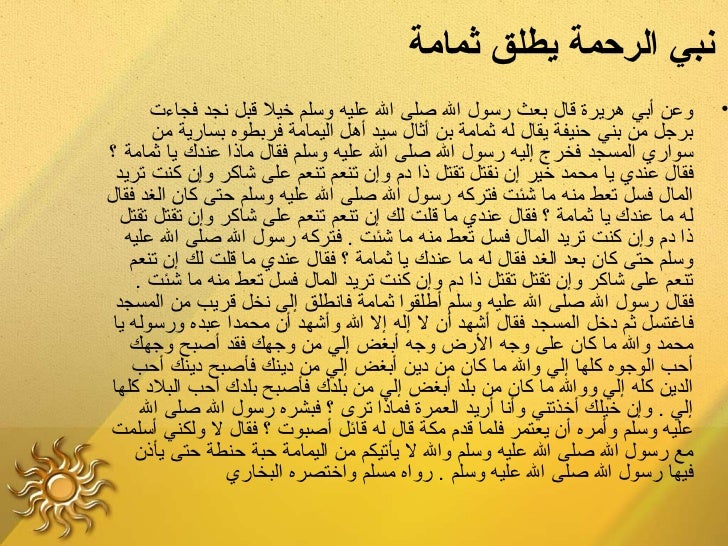 نبي الرحمة يطلق ثمامة
• وعن أبي هريرة قال بعث رسول الله صلى الله عليه وسلم خيلا قبل نجد فجاءت
برجل من بني حنيفة يقال له ثمامة بن أثال سيد أهل اليمامة فربطوه بسارية من
سواري المسجد فخرج إليه رسول الله صلى الله عليه وسلم فقال ماذا عندك يا ثمامة ؟
فقال عندي يا محمد خير إن نقتل تقتل ذا دم وإن تنعم تنعم على شاكر وإن كنت تريد
المال فسل تعط منه ما شئت فتركه رسول الله صلى الله عليه وسلم حتى كان الغد فقال
له ما عندك يا ثمامة ؟ فقال عندي ما قلت لك إن تنعم تنعم على شاكر وإن تقتل تقتل
ذا دم وإن كنت تريد المال فسل تعط منه ما شئت . فتركه رسول الله صلى الله عليه
وسلم حتى كان بعد الغد فقال له ما عندك يا ثمامة ؟ فقال عندي ما قلت لك إن تنعم
تنعم على شاكر وإن تقتل تقتل ذا دم وإن كنت تريد المال فسل تعط منه ما شئت .
فقال رسول الله صلى الله عليه وسلم أطلقوا ثمامة فانطلق إلى نخل قريب من المسجد
فاغتسل ثم دخل المسجد فقال أشهد أن لا إله إلا الله وأشهد أن محمدا عبده ورسوله يا
محمد والله ما كان على وجه الأرض وجه أبغض إلي من وجهك فقد أصبح وجهك
أحب الوجوه كلها إلي والله ما كان من دين أبغض إلي من دينك فأصبح دينك أحب
الدين كله إلي ووالله ما كان من بلد أبغض إلي من بلدك فأصبح بلدك أحب البلاد كلها
إلي . وإن خيلك أخذتني وأنا أريد العمرة فماذا ترى ؟ فبشره رسول الله صلى الله
عليه وسلم وأمره أن يعتمر فلما قدم مكة قال له قائل أصبوت ؟ فقال لا ولكني أسلمت
مع رسول الله صلى الله عليه وسلم والله لا يأتيكم من اليمامة حبة حنطة حتى يأذن
فيها رسول الله صلى الله عليه وسلم . رواه مسلم واختصره البخاري